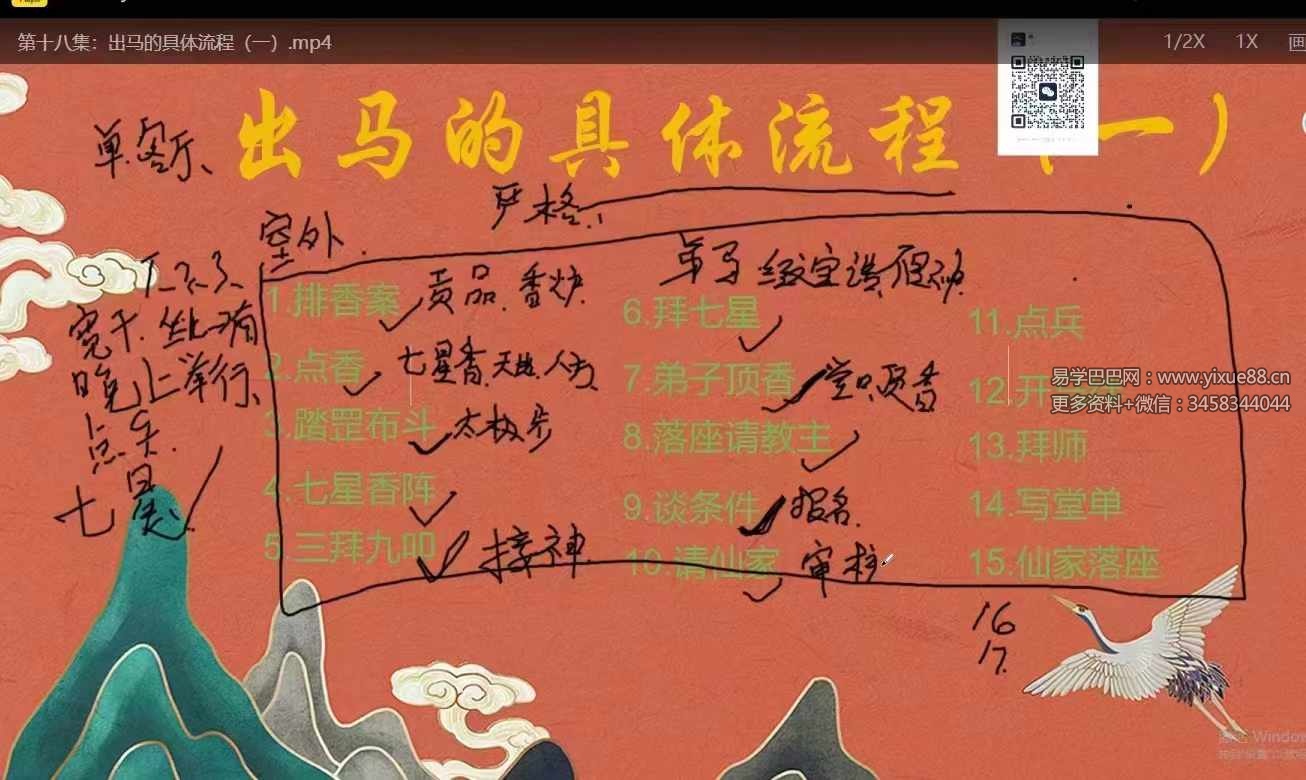 第十八集：出马的具体流程（一）.mp4
1/2X 1X 画
出马的具体流程（一）
单.客厅、
严格、
室外
1.2.3.
晚上举行、
点头.
七星
1.排香案
贡品.香炉.
2.点香
七星香.天地.人
3.踏罡布斗
太极步
4.七星香阵
5.三拜九叩
接神.
6.拜七星
7.弟子顶香
8.落座请教主
9.谈条件
报名.
10.请仙家
审核
11.点兵
12.开
13.拜师
14.写堂单
15.仙家落座
16
17.
易学巴巴网：www.yixue88.cn
更多资料+微信：3458344044
Windows